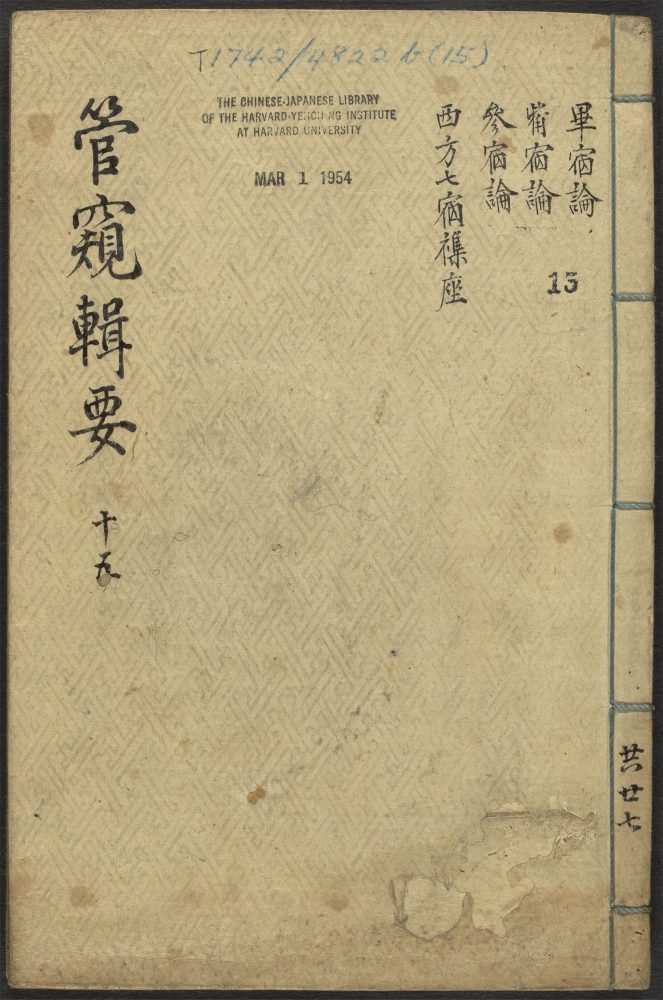 T1742/4822b(15)
THE CHINESE-JAPANESE LIBRARY
OF THE HARVARD-YENCHING INSTITUTE
AT HARVARD UNIVERSITY
MAR 1 1954
畢宿論
觜宿論
參宿論
西方七宿襍座
15
管窺輯要
十五
共廿七